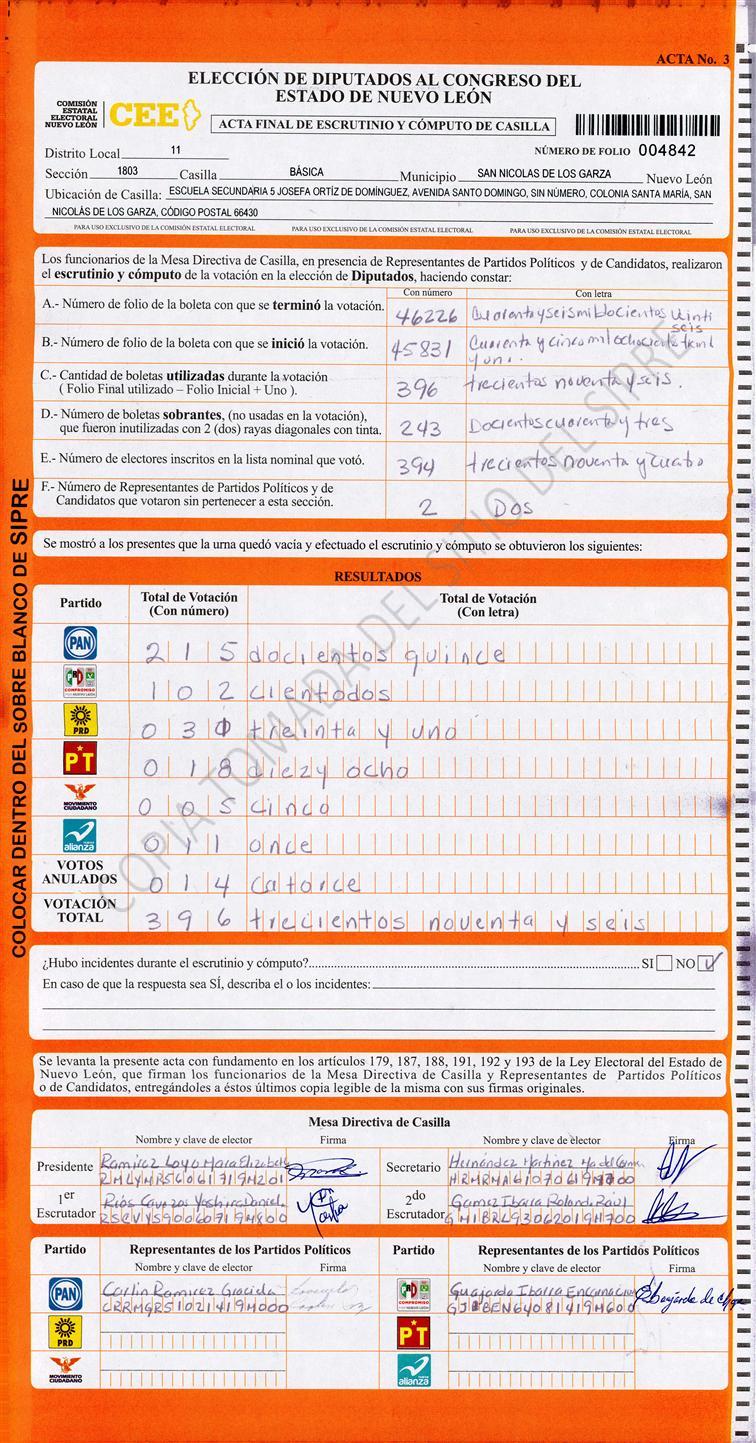 ACTA No. 3
ELECCIÓN DE DIPUTADOS AL CONGRESO DEL
ESTADO DE NUEVO LEÓN
COMISIÓN
ESTATAL
ELECTORAL
NUEVO LEÓN
CEE
ACTA FINAL DE ESCRUTINIO Y CÓMPUTO DE CASILLA
Distrito Local 11
NÚMERO DE FOLIO 004842
Sección 1803 Casilla BÁSICA Municipio SAN NICOLAS DE LOS GARZA Nuevo León
Ubicación de Casilla: ESCUELA SECUNDARIA 5 JOSEFA ORTÍZ DE DOMÍNGUEZ, AVENIDA SANTO DOMINGO, SIN NÚMERO, COLONIA SANTA MARÍA, SAN
NICOLÁS DE LOS GARZA, CÓDIGO POSTAL 66430
PARA USO EXCLUSIVO DE LA COMISIÓN ESTATAL ELECTORAL PARA USO EXCLUSIVO DE LA COMISIÓN ESTATAL ELECTORAL PARA USO EXCLUSIVO DE LA COMISIÓN ESTATAL ELECTORAL
Los funcionarios de la Mesa Directiva de Casilla, en presencia de Representantes de Partidos Políticos y de Candidatos, realizaron
el escrutinio y cómputo de la votación en la elección de Diputados, haciendo constar:
Con número Con letra
A.- Número de folio de la boleta con que se terminó la votación. 46226 Cuarenta y seis mil docientos vinti
seis
B.- Número de folio de la boleta con que se inició la votación. 45831 Cuarenta y cinco mil
y uno.
C.- Cantidad de boletas utilizadas durante la votación
( Folio Final utilizado – Folio Inicial + Uno ). 396 trecientos noventa y seis.
D.- Número de boletas sobrantes, (no usadas en la votación),
que fueron inutilizadas con 2 (dos) rayas diagonales con tinta. 243 Docientos cuarenta y tres
E.- Número de electores inscritos en la lista nominal que votó. 394 trecientos noventa y cuatro
F.- Número de Representantes de Partidos Políticos y de
Candidatos que votaron sin pertenecer a esta sección. 2 DOS
Se mostró a los presentes que la urna quedó vacía y efectuado el escrutinio y cómputo se obtuvieron los siguientes:
RESULTADOS
Partido Total de Votación Total de Votación
(Con número) (Con letra)
PAN 215 docientos quince
PRI COMPROMISO 102 cientodos
PRD 031 treinta y uno
PT 018 diez y ocho
MOVIMIENTO CIUDADANO 005 cinco
alianza 011 once
VOTOS
ANULADOS 014 catorce
VOTACIÓN
TOTAL 396 trecientos noventa y seis
¿Hubo incidentes durante el escrutinio y cómputo? SI NO
En caso de que la respuesta sea SÍ, describa el o los incidentes:
Se levanta la presente acta con fundamento en los artículos 179, 187, 188, 191, 192 y 193 de la Ley Electoral del Estado de
Nuevo León, que firman los funcionarios de la Mesa Directiva de Casilla y Representantes de Partidos Políticos
o de Candidatos, entregándoles a éstos últimos copia legible de la misma con sus firmas originales.
Mesa Directiva de Casilla
Nombre y clave de elector Firma Nombre y clave de elector Firma
Presidente Ramirez Loyo Mara Elizabeth
Secretario Hernández Martinez Ma del Carmen
1er
Escrutador Rios Cavazos Yeshira Daniela
2do
Escrutador Gamez Ibarra Rolando Raul
Partido Representantes de los Partidos Políticos Partido Representantes de los Partidos Políticos
Nombre y clave de elector Firma Nombre y clave de elector Firma
PAN Carlin Ramirez Graciela
CRRMGR51021419M000
PRI Guajardo Ibarra Encarnacion
PRD
PT
MOVIMIENTO CIUDADANO
alianza
COLOCAR DENTRO DEL SOBRE BLANCO DE SIPRE
COPIA TOMADA DEL SITIO DEL SIPRE